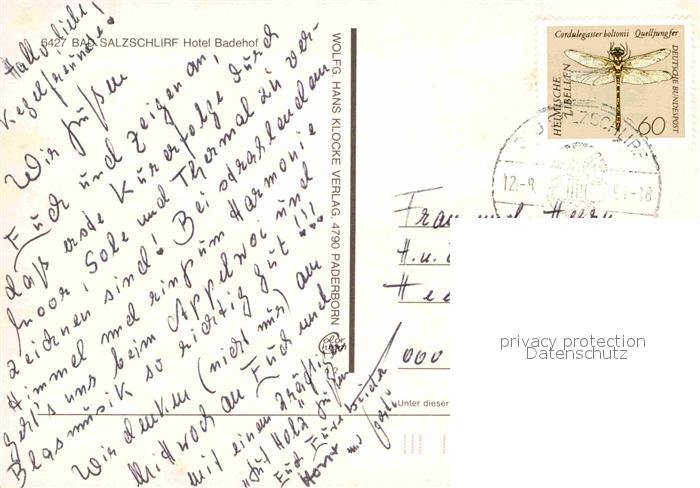 6427 BAD SALZSCHLIRF Hotel Badehof
Hallo liebe
Kegelfreunde!
Wir grüßen
Euch und zeigen an,
daß erste Kurerfolge durch
Moor, Sole und Thermal zu ver-
zeichnen sind! Bei strahlendem
Himmel und ringsum Harmonie
geht's uns beim Appelwoi und
Blasmusik so richtig gut!!!
Wir denken (nicht nur) am
Mittwoch an Euch und
mit einem kräftigen
"Gut Holz" grüßen
Euch Eure beiden
Horst und
WOLFG. HANS KLOCKE VERLAG, 4790 PADERBORN
Cordulegaster boltonii Quelljungfer
HEIMISCHE
LIBELLEN
DEUTSCHE BUNDESPOST
60
BAD SALZSCHLIRF
12.-9. 91-18
Frau und Herrn
H. u.
Hee
000
Unter dieser
privacy protection
Datenschutz